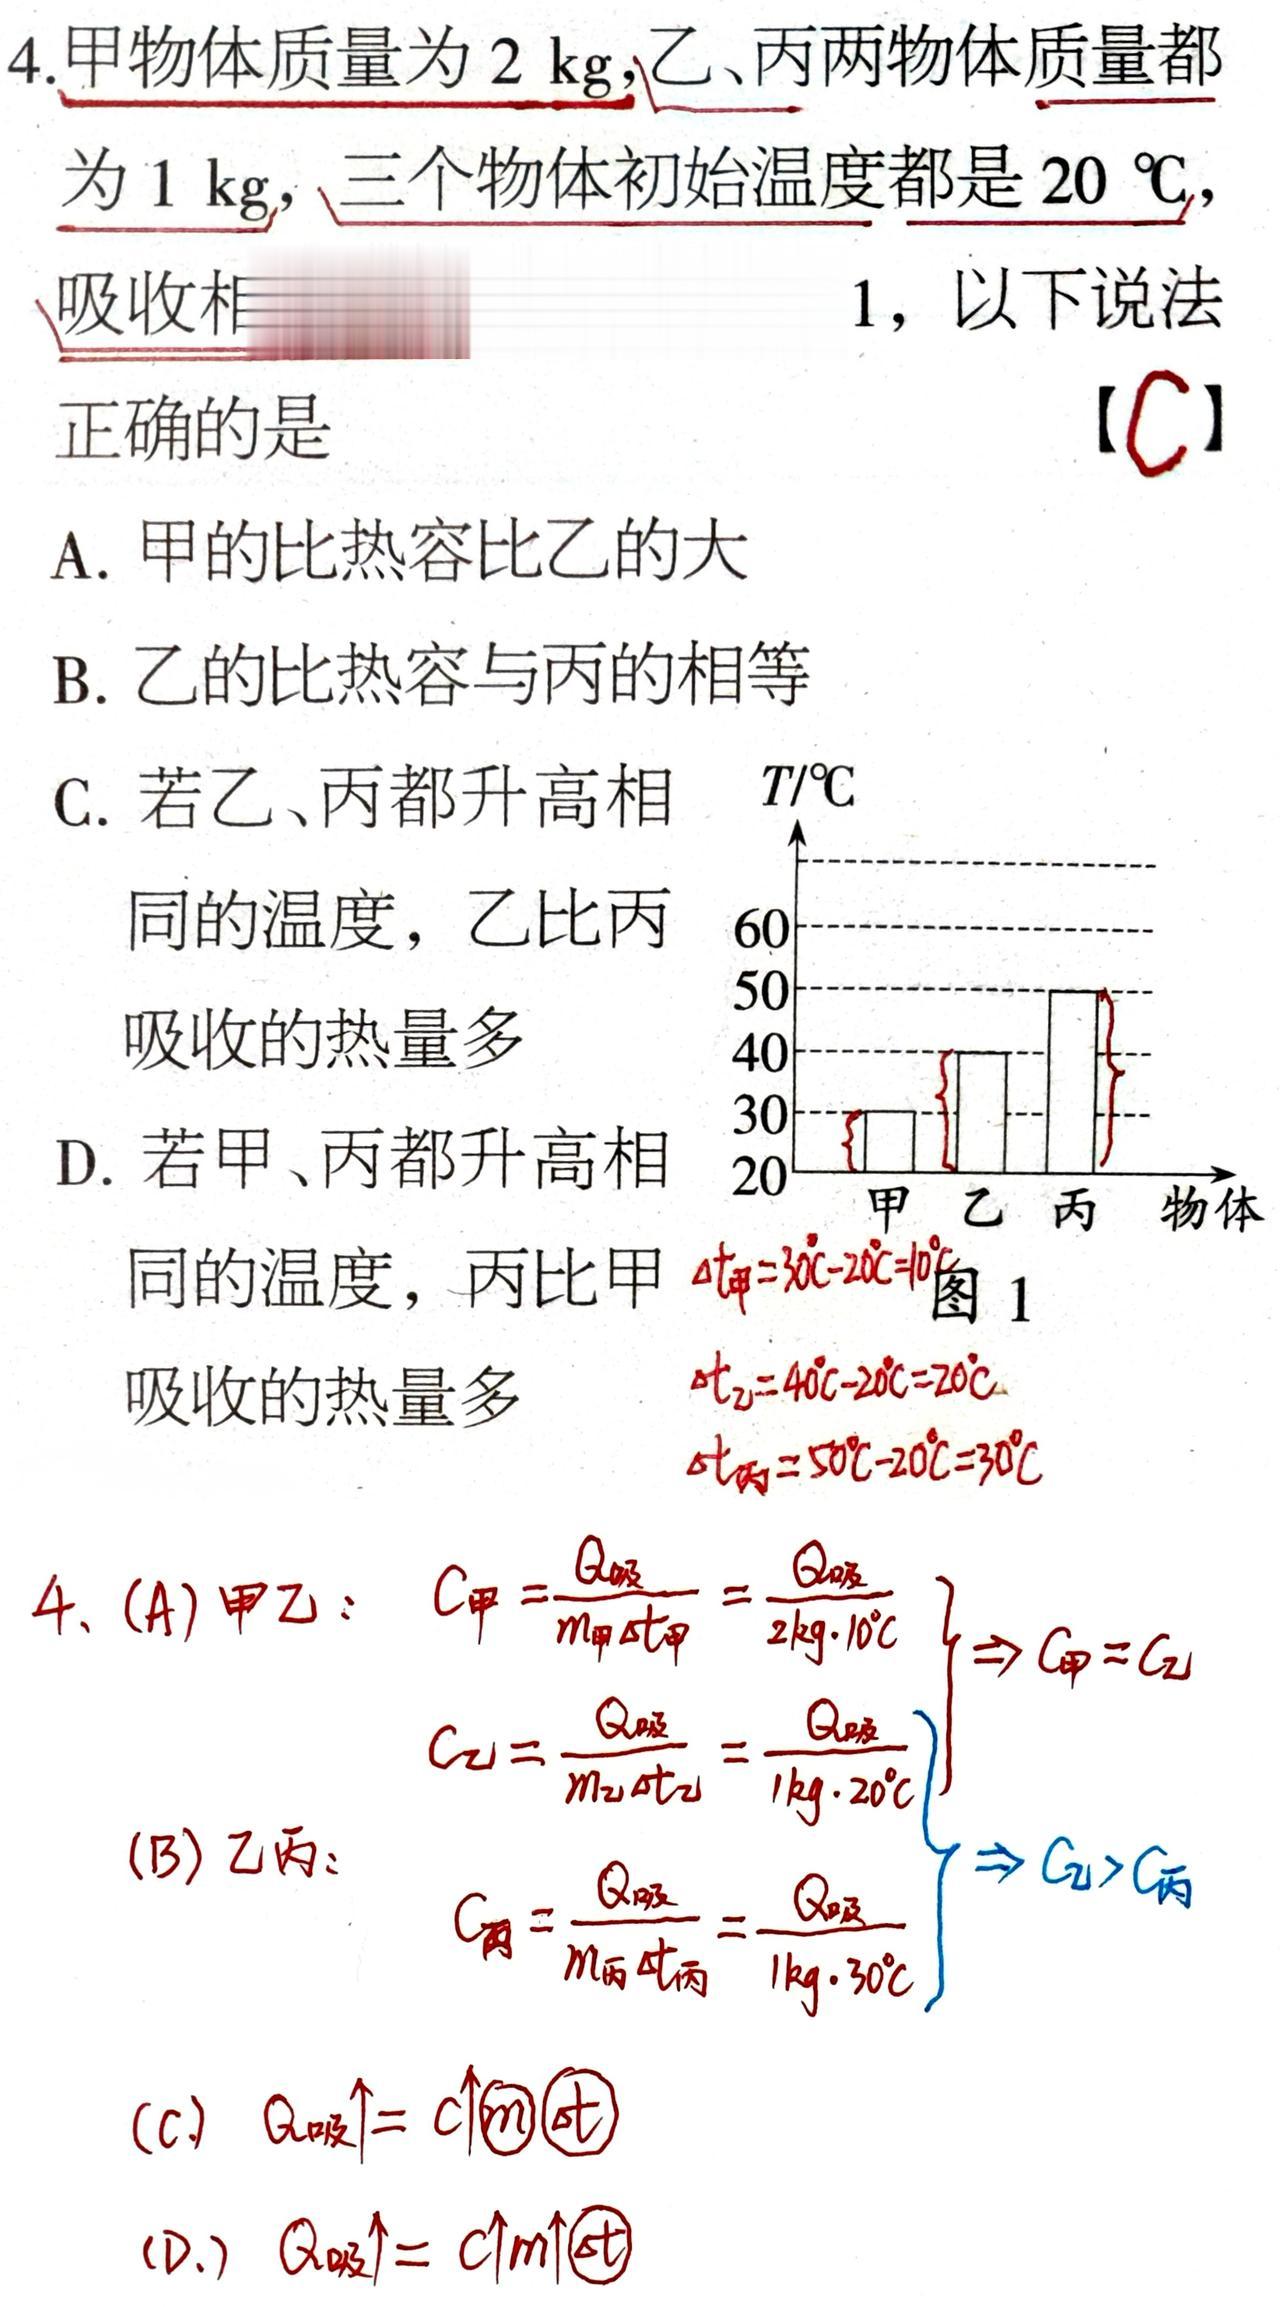 4.甲物体质量为 2 kg,乙、丙两物体质量都
为 1 kg, 三个物体初始温度都是 20 ℃,
吸收相
1, 以下说法
正确的是 【C】
A. 甲的比热容比乙的大
B. 乙的比热容与丙的相等
C. 若乙、丙都升高相
同的温度, 乙比丙
吸收的热量多
D. 若甲、丙都升高相
同的温度, 丙比甲
吸收的热量多
T/℃
60
50
40
30
20
甲 乙 丙 物体
图 1
Δt甲=30℃-20℃=10℃
Δt乙=40℃-20℃=20℃
Δt丙=50℃-20℃=30℃
4、(A) 甲乙: C甲 = Q吸/m甲Δt甲 = Q吸/2kg·10℃ ⇒ C甲=C乙
C乙 = Q吸/m乙Δt乙 = Q吸/1kg·20℃
(B) 乙丙: ⇒ C乙>C丙
C丙 = Q吸/m丙Δt丙 = Q吸/1kg·30℃
(C.) Q吸↑= C↑mΔt
(D.) Q吸↑= C↑m↑Δt